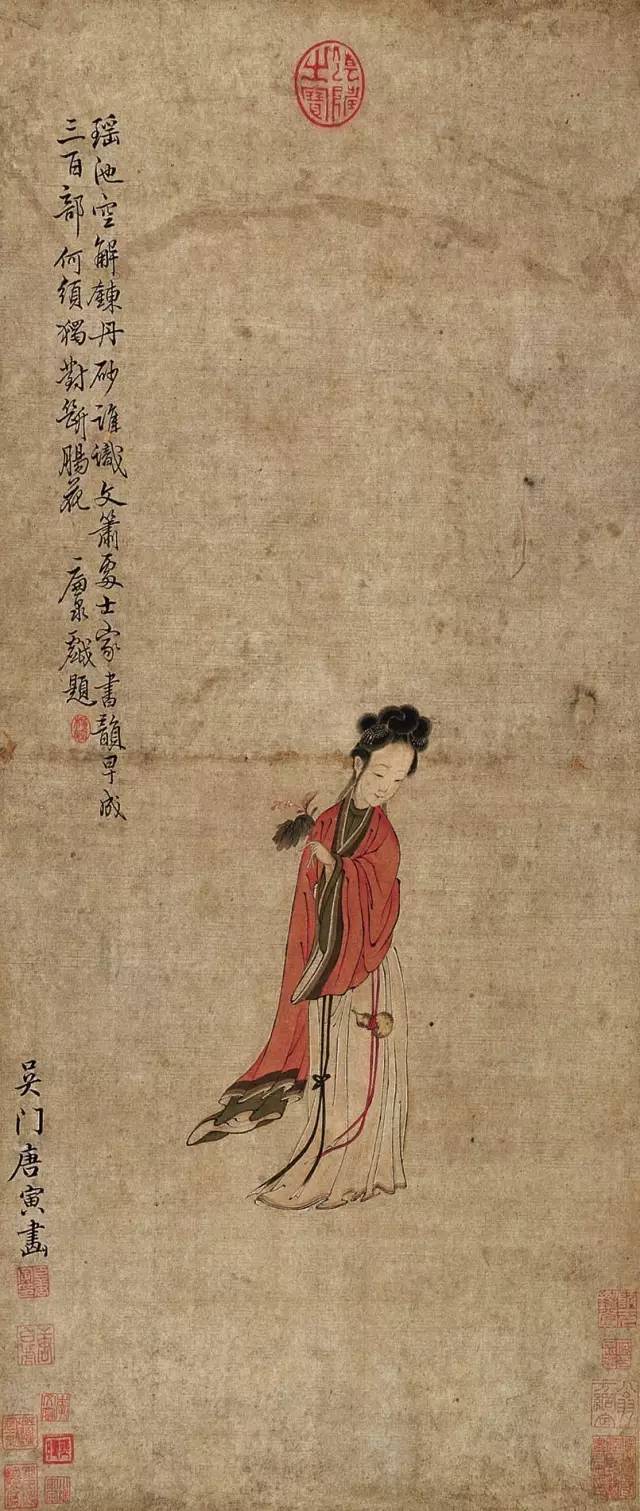 瑶池空解鍊丹砂誰識文簫處士家書韻早成
三百部何須獨對斷腸花
戲題
吴门唐寅畫